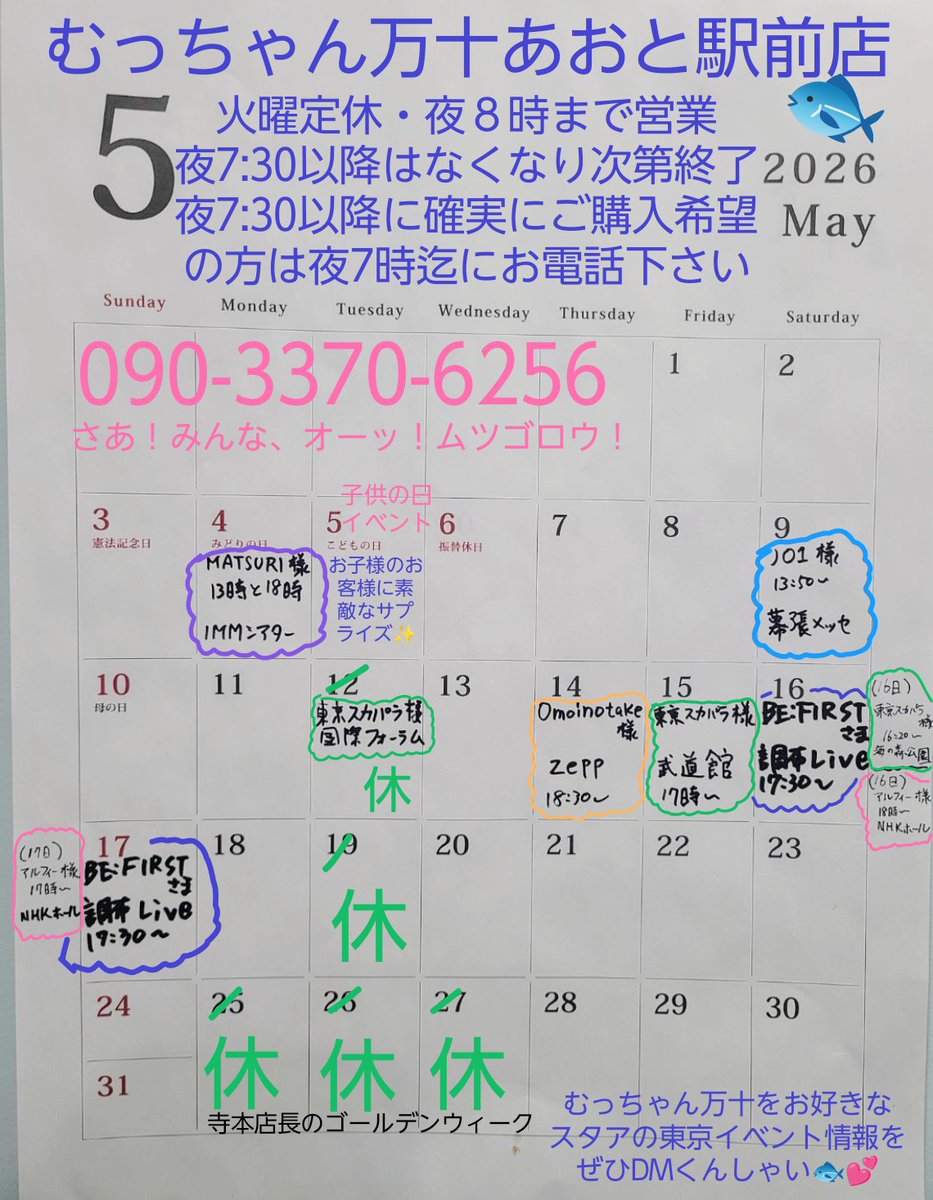 むっちゃん万十あおと駅前店
火曜定休・夜８時まで営業
夜7:30以降はなくなり次第終了
夜7:30以降に確実にご購入希望
の方は夜7時迄にお電話下さい
5
2026
May
Sunday Monday Tuesday Wednesday Thursday Friday Saturday
090-3370-6256
さあ！みんな、オーッ！ムツゴロウ！
1 2
3 4 5 6 7 8 9
憲法記念日 みどりの日 こどもの日 振替休日
子供の日
イベント
お子様のお
客様に素
敵なサプ
ライズ✨
MATSURI様
13時と18時
IMMシアター
JO1様
13:50〜
幕張メッセ
10 11 12 13 14 15 16
母の日
東京スカパラ様
国際フォーラム
休
Omoinotake
様
Zepp
18:30〜
東京スカパラ様
武道館
17時〜
BE:FIRST
さま
調布Live
17:30〜
(16日)
東京スカパラ
様
16:20〜
海の森公園
(16日)
アルフィー様
18時〜
NHKホール
17 18 19 20 21 22 23
(17日)
アルフィー様
17時〜
NHKホール
BE:FIRST
さま
調布Live
17:30〜
休
24 25 26 27 28 29 30
31
休 休 休
寺本店長のゴールデンウィーク
むっちゃん万十をお好きな
スタアの東京イベント情報を
ぜひDMくんしゃい🐟💕